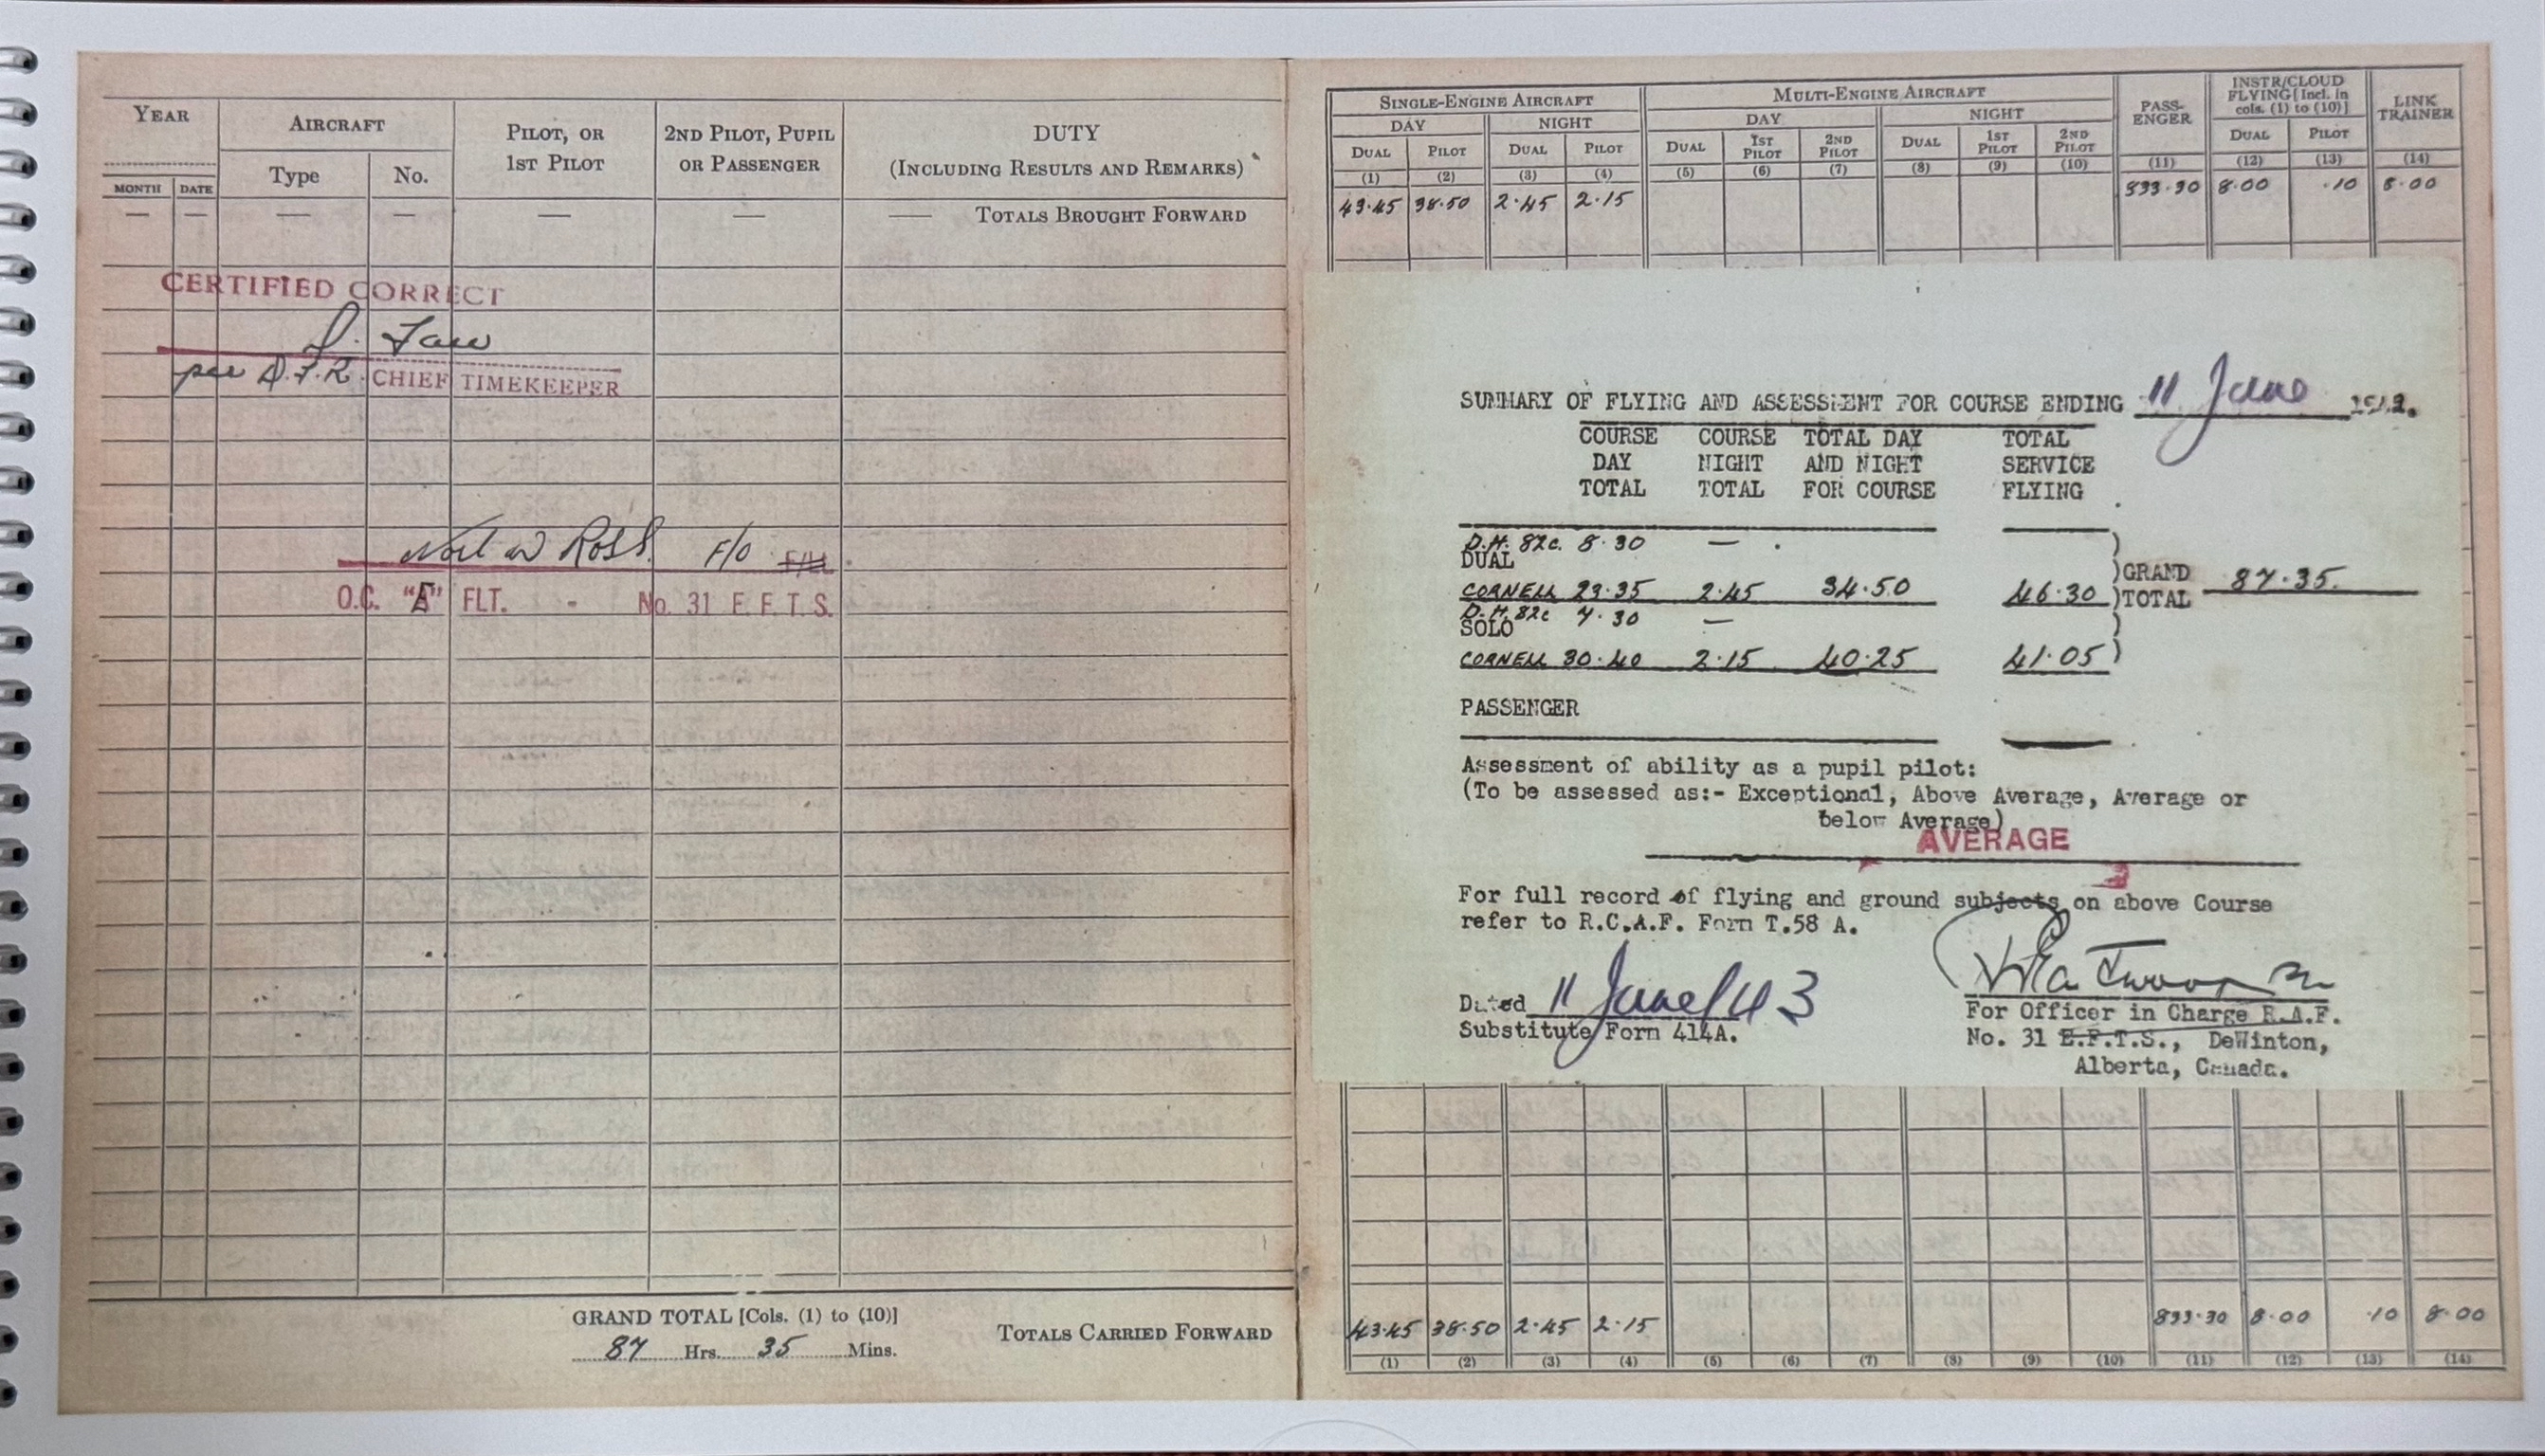 YEAR
AIRCRAFT
PILOT, OR
1ST PILOT
2ND PILOT, PUPIL
OR PASSENGER
DUTY
(INCLUDING RESULTS AND REMARKS)
MONTH DATE
Type No.
— — — — — — —— TOTALS BROUGHT FORWARD
CERTIFIED CORRECT
per D.F.R. CHIEF TIMEKEEPER
Ross F/O F/Lt.
O.C. FLT. - No. 31 E.F.T.S.
GRAND TOTAL [Cols. (1) to (10)]
87 Hrs. 35 Mins.
TOTALS CARRIED FORWARD
SINGLE-ENGINE AIRCRAFT MULTI-ENGINE AIRCRAFT PASS-ENGER INSTR/CLOUD FLYING [Incl. in cols. (1) to (10)] LINK TRAINER
DAY NIGHT DAY NIGHT
DUAL PILOT DUAL PILOT DUAL 1ST PILOT 2ND PILOT DUAL 1ST PILOT 2ND PILOT DUAL PILOT
(1) (2) (3) (4) (5) (6) (7) (8) (9) (10) (11) (12) (13) (14)
43.45 38.50 2.45 2.15 833.30 8.00 .10 8.00
SUMMARY OF FLYING AND ASSESSMENT FOR COURSE ENDING 11 June
COURSE COURSE TOTAL DAY TOTAL
DAY NIGHT AND NIGHT SERVICE
TOTAL TOTAL FOR COURSE FLYING
D.H. 82c. 8.30 —
DUAL
CORNELL 23.35 2.45 34.50 46.30 )GRAND TOTAL 87.35.
D.H. 82c 7.30 —
SOLO
CORNELL 30.40 2.15 40.25 41.05 )
PASSENGER
Assessment of ability as a pupil pilot:
(To be assessed as:- Exceptional, Above Average, Average or
below Average)
AVERAGE
For full record of flying and ground subjects on above Course
refer to R.C.A.F. Form T.58 A.
Dated 11 June/43
Substitute Form 414A.
For Officer in Charge R.A.F.
No. 31 E.F.T.S., DeWinton,
Alberta, Canada.
43.45 38.50 2.45 2.15 833.30 8.00 .10 8.00
(1) (2) (3) (4) (5) (6) (7) (8) (9) (10) (11) (12) (13) (14)